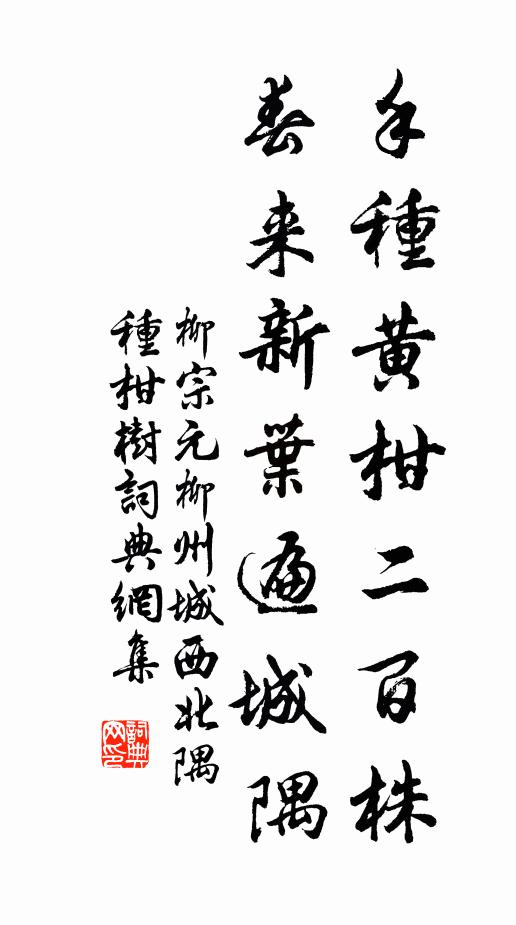 手種黄柑二百株
春来新葉遍城隅
柳宗元柳州城西北隅
種柑樹詞典網集
詞典
网印